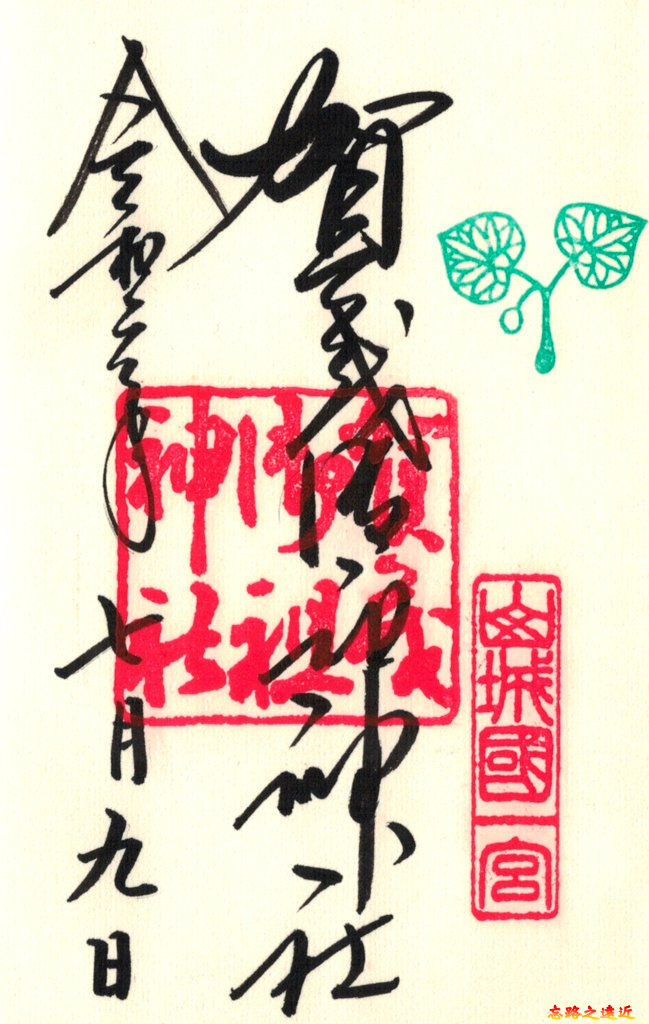 山城國一宮
賀茂御祖神社
賀茂
御祖
神社
令和年七月九日
忘路之遠近